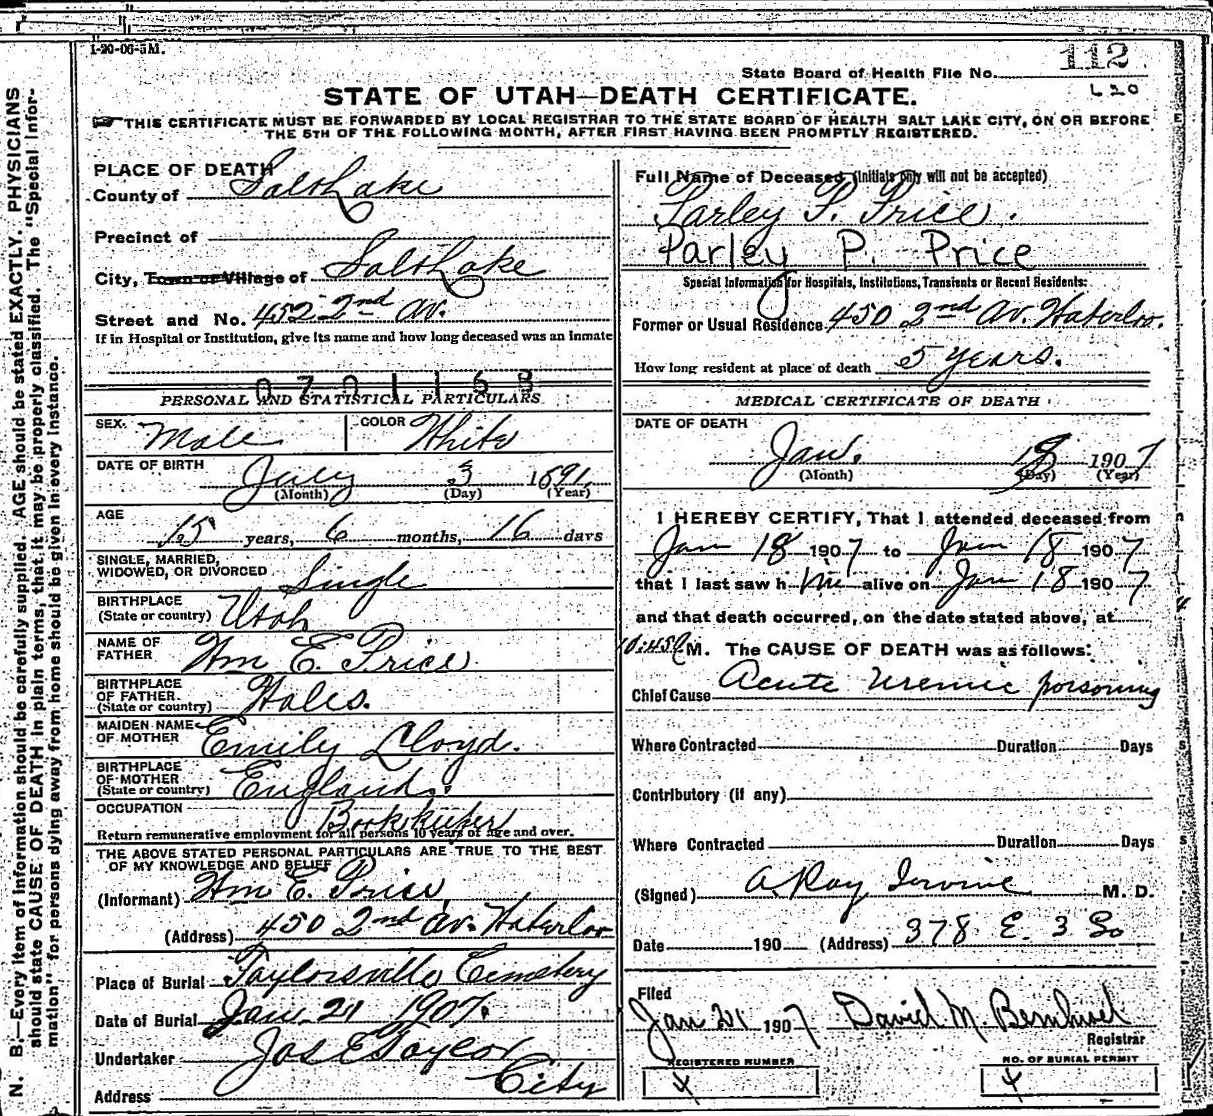 1-20-06-5M.
State Board of Health File No. 112
620
STATE OF UTAH—DEATH CERTIFICATE.
THIS CERTIFICATE MUST BE FORWARDED BY LOCAL REGISTRAR TO THE STATE BOARD OF HEALTH SALT LAKE CITY, ON OR BEFORE
THE 5TH OF THE FOLLOWING MONTH, AFTER FIRST HAVING BEEN PROMPTLY REGISTERED.
N. B.—Every item of information should be carefully supplied. AGE should be stated EXACTLY. PHYSICIANS
should state CAUSE OF DEATH in plain terms, that it may be properly classified. The "Special Infor-
mation" for persons dying away from home should be given in every instance.
PLACE OF DEATH
County of Salt Lake
Precinct of
City, Town or Village of Salt Lake
Street and No. 452 2nd Av.
If in Hospital or Institution, give its name and how long deceased was an inmate
PERSONAL AND STATISTICAL PARTICULARS
SEX. Male COLOR White
DATE OF BIRTH July 3 1891
(Month) (Day) (Year)
AGE
15 years, 6 months, 16 days
SINGLE, MARRIED,
WIDOWED, OR DIVORCED Single
BIRTHPLACE
(State or country) Utah
NAME OF
FATHER Wm E. Price
BIRTHPLACE
OF FATHER.
(State or country) Wales.
MAIDEN NAME
OF MOTHER Emily Lloyd.
BIRTHPLACE
OF MOTHER
(State or country) England.
OCCUPATION Bookkeeper
Return remunerative employment for all persons 10 years of age and over.
THE ABOVE STATED PERSONAL PARTICULARS ARE TRUE TO THE BEST
OF MY KNOWLEDGE AND BELIEF
(Informant) Wm E. Price
(Address) 450 2nd Av. Waterloo
Place of Burial Taylorsville Cemetery
Date of Burial Jan. 21 1907.
Undertaker Jos E Taylor
Address City
Full Name of Deceased (Initials only will not be accepted)
Parley P. Price.
Parley P. Price
Special Information for Hospitals, Institutions, Transients or Recent Residents:
Former or Usual Residence 450 2nd Av. Waterloo.
How long resident at place of death 5 years.
MEDICAL CERTIFICATE OF DEATH
DATE OF DEATH
Jan. 18 1907
(Month) (Day) (Year)
I HEREBY CERTIFY, That I attended deceased from
Jan 18 1907 to Jan 18 1907
that I last saw him alive on Jan 18 1907
and that death occurred, on the date stated above, at
10:45P M. The CAUSE OF DEATH was as follows:
Chief Cause Acute Uremic poisoning
Where Contracted Duration Days
Contributory (if any)
Where Contracted Duration Days
(Signed) A Ray Irvine M. D.
Date 190 (Address) 378 E. 3 So
Filed
Jan 21 1907 David M. Bernhisel
Registrar
REGISTERED NUMBER NO. OF BURIAL PERMIT
4 4